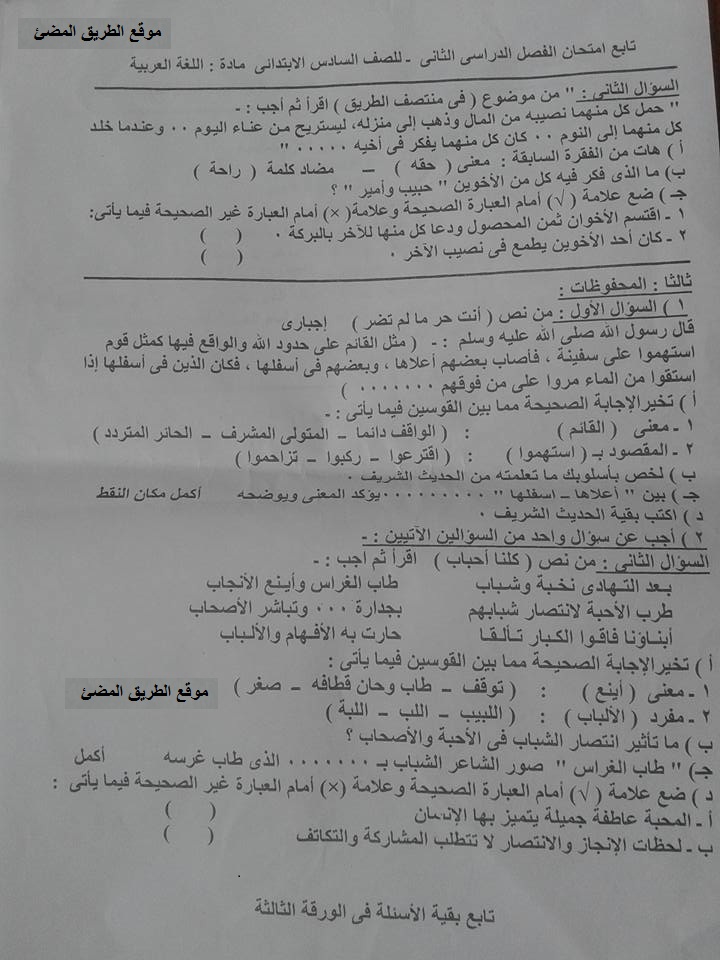 موقع الطريق المضئ
تابع امتحان الفصل الدراسى الثانى - للصف السادس الابتدائى مادة : اللغة العربية
السؤال الثانى : " من موضوع ( فى منتصف الطريق ) اقرأ ثم أجب : -
" حمل كل منهما نصيبه من المال وذهب إلى منزله، ليستريح من عناء اليوم ٠٠ وعندما خلد
كل منهما إلى النوم ٠٠ كان كل منهما يفكر فى أخيه ٠٠٠٠٠ "
أ ) هات من الفقرة السابقة : معنى ( حقه ) – مضاد كلمة ( راحة )
ب) ما الذى فكر فيه كل من الأخوين " حبيب وأمير " ؟
جـ ) ضع علامة (√) أمام العبارة الصحيحة وعلامة( ×) أمام العبارة غير الصحيحة فيما يأتى:
١ - اقتسم الأخوان ثمن المحصول ودعا كل منها للآخر بالبركة ٠ ( )
٢ - كان أحد الأخوين يطمع فى نصيب الآخر ٠ ( )
ثالثا : المحفوظات :
١ ) السؤال الأول : من نص ( أنت حر ما لم تضر ) إجبارى
قال رسول الله صلى الله عليه وسلم : - ( مثل القائم على حدود الله والواقع فيها كمثل قوم
استهموا على سفينة ، فأصاب بعضهم أعلاها ، وبعضهم فى أسفلها ، فكان الذين فى أسفلها إذا
استقوا من الماء مروا على من فوقهم ٠٠٠٠٠٠٠ )
أ ) تخير الإجابة الصحيحة مما بين القوسين فيما يأتى : -
١ - معنى ( القائم ) : ( الواقف دائما – المتولى المشرف – الحائر المتردد )
٢ - المقصود بـ ( استهموا ) : ( اقترعوا – ركبوا – تزاحموا )
ب ) لخص بأسلوبك ما تعلمته من الحديث الشريف ٠
جـ ) بين " أعلاها – اسفلها " ٠٠٠٠٠٠٠٠٠ يؤكد المعنى ويوضحه أكمل مكان النقط
د ) اكتب بقية الحديث الشريف ٠
٢ ) أجب عن سؤال واحد من السؤالين الآتيين : -
السؤال الثانى : من نص ( كلنا أحباب ) اقرأ ثم أجب : -
بعد التهادى نخبة وشباب طاب الغراس وأينع الأنجاب
طرب الأحبة لانتصار شبابهم بجدارة ٠٠٠ وتباشر الأصحاب
أبناؤنا فاقوا الكبار تألقا حارت به الأفهام والألباب
أ ) تخير الإجابة الصحيحة مما بين القوسين فيما يأتى : -
١ - معنى ( أينع ) : ( توقف – طاب وحان قطافه – صغر )
موقع الطريق المضئ
٢ - مفرد ( الألباب ) : ( اللبيب – اللب – اللبة )
ب ) ما تأثير انتصار الشباب فى الأحبة والأصحاب ؟
جـ) " طاب الغراس " صور الشاعر الشباب بـ ٠٠٠٠٠٠٠ الذى طاب غرسه أكمل
د ) ضع علامة (√) أمام العبارة الصحيحة وعلامة (×) أمام العبارة غير الصحيحة فيما يأتى :
أ - المحبة عاطفة جميلة يتميز بها الإنسان ( )
ب - لحظات الإنجاز والانتصار لا تتطلب المشاركة والتكاتف ( )
تابع بقية الأسئلة فى الورقة الثالثة